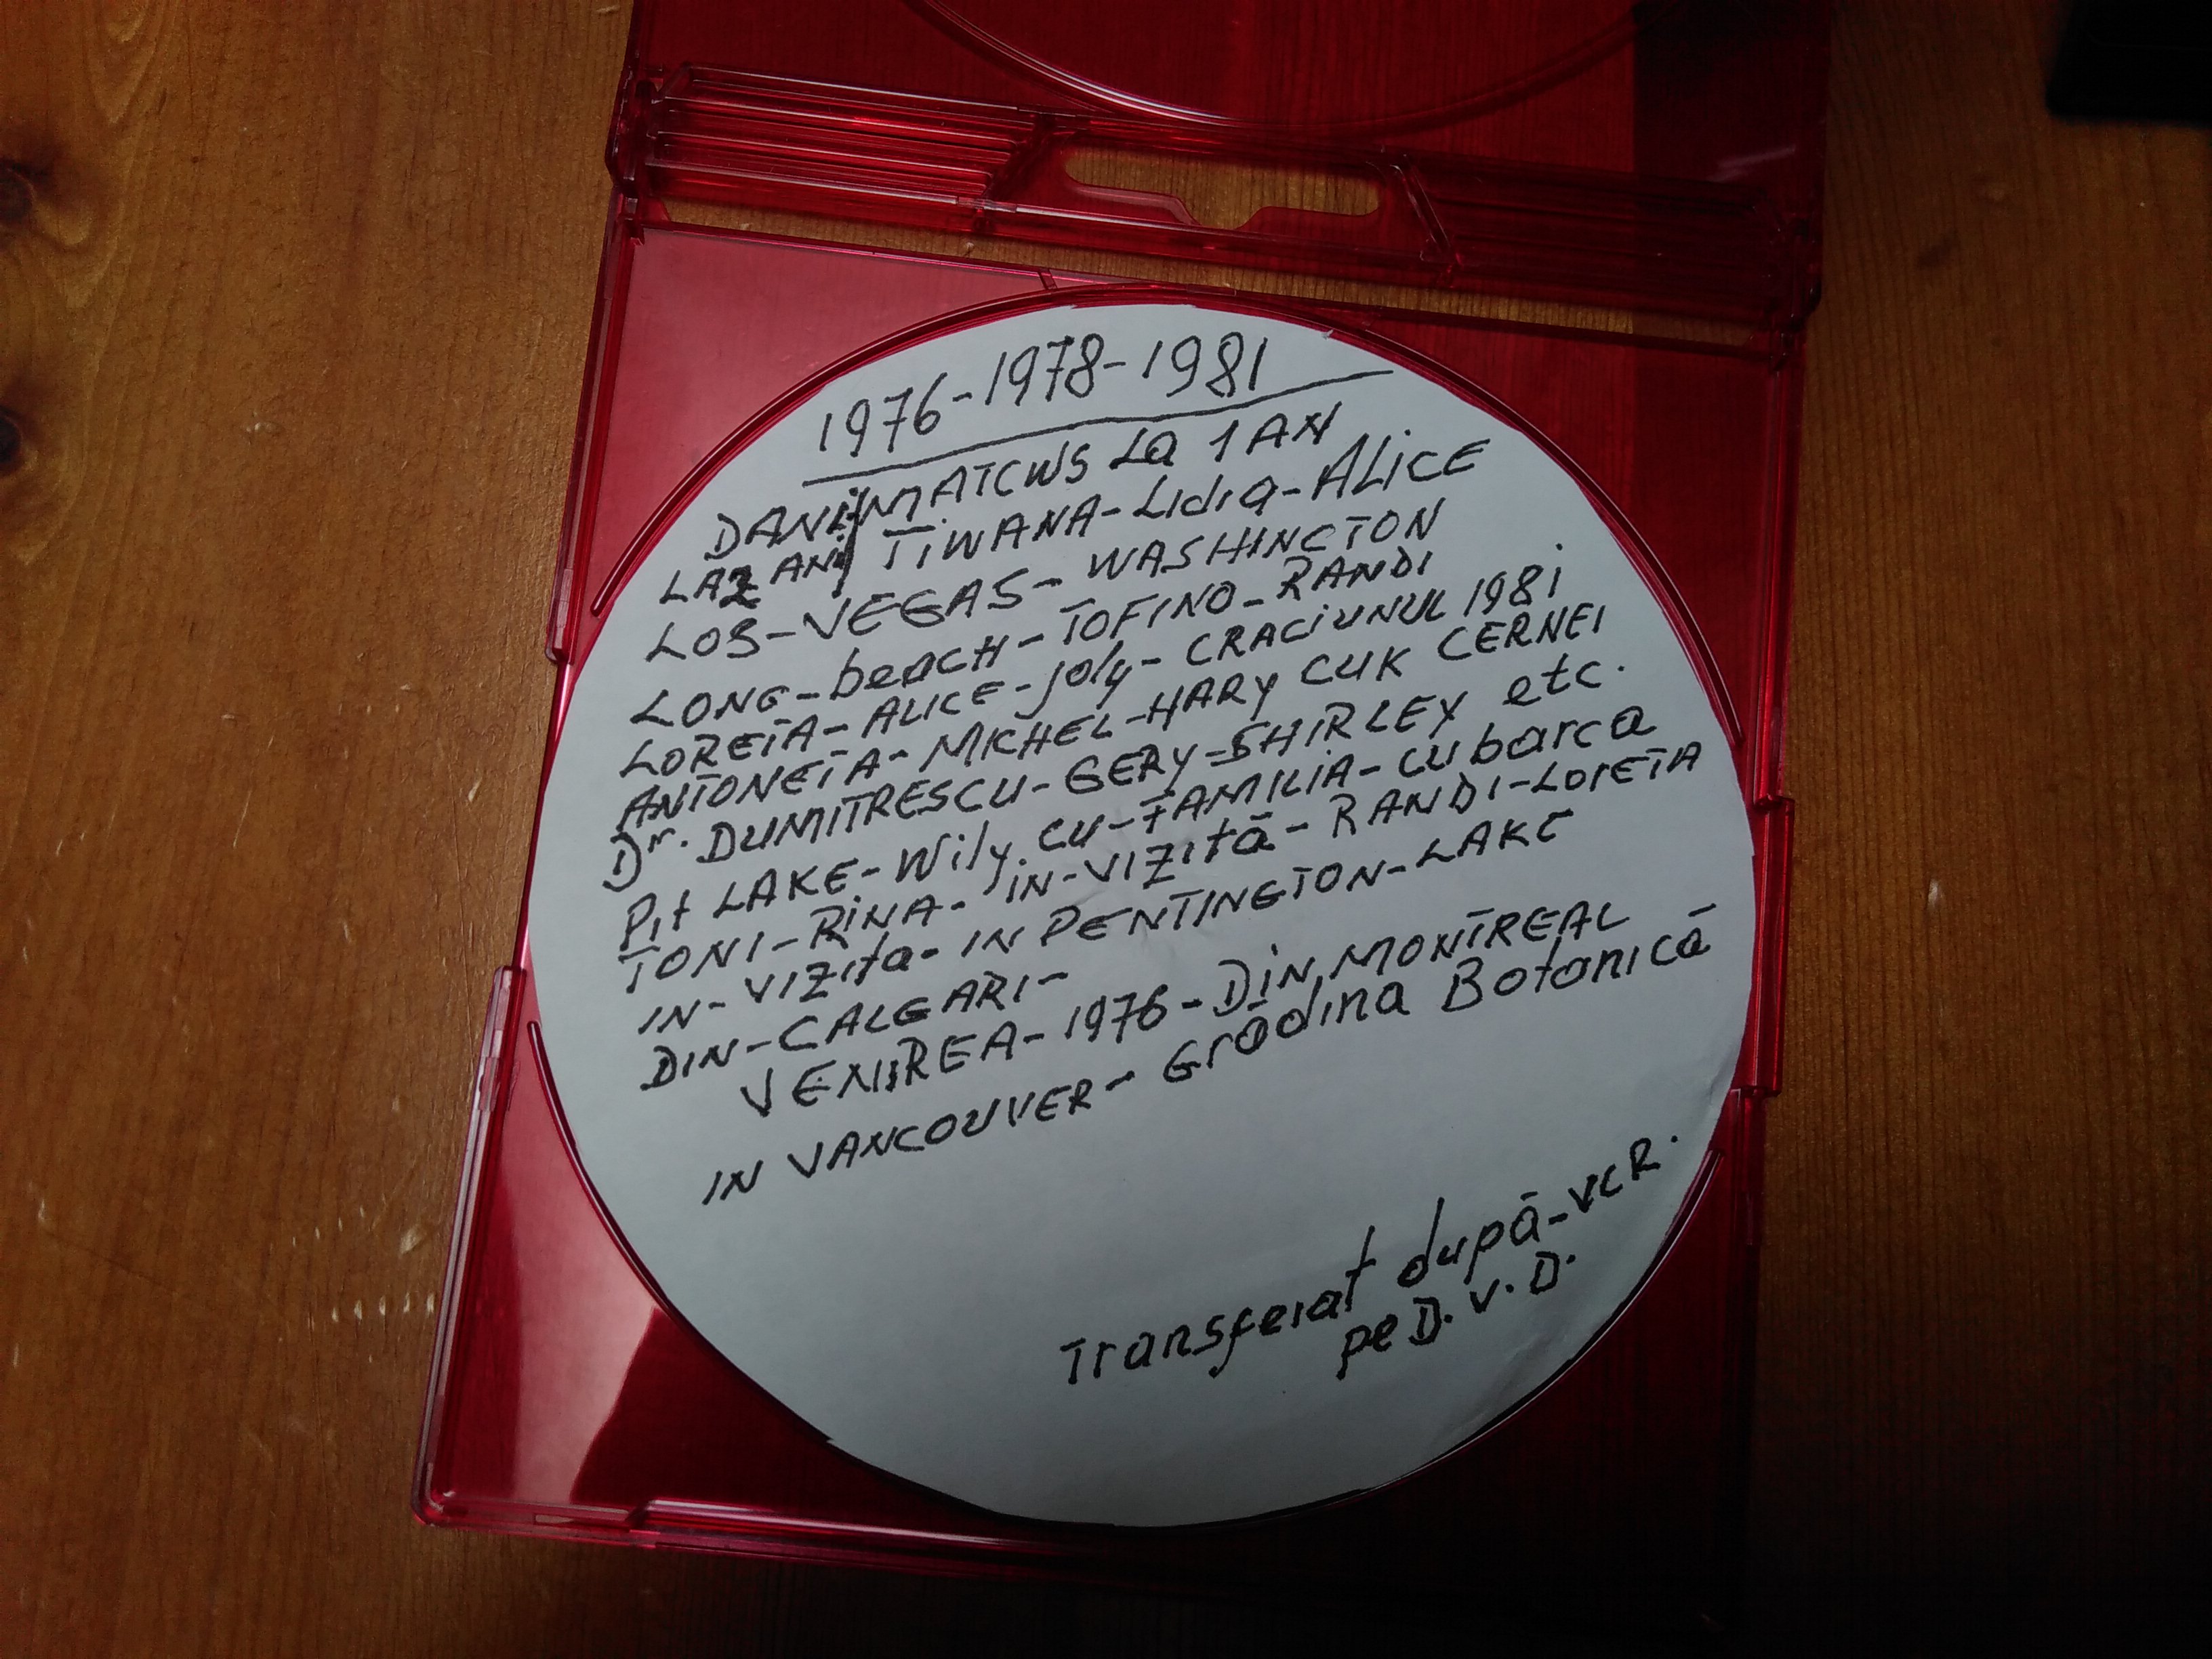 1976-1978-1981
DANI-MATCUS La 1 AN
LA 2 ANI TiWANA-Lidia-ALiCE
LOS-VEGAS-WASHINGTON
LONG-beaCH-TOFINO-RANDI
LORETA-ALICE-joly-CRACiUNUL 1981
ANTONETA-MICHEL-HARY CUK CERNEI
Dr. DUMITRESCU-GERY-SHIRLEY etc.
Pit LAKE-Wily.CU-FAMILIA-cu barca
TONI-RiNA-IN-VIZITă-RANDI-LorETA
IN-VIZITa-IN PENTINGTON-LAKE
DIN-CALGARI-
VENIREA-1976-DiN MONTREAL
IN VANCOUVER-Grădina Botanică
Transferat după-VCR.
pe D.V.D.